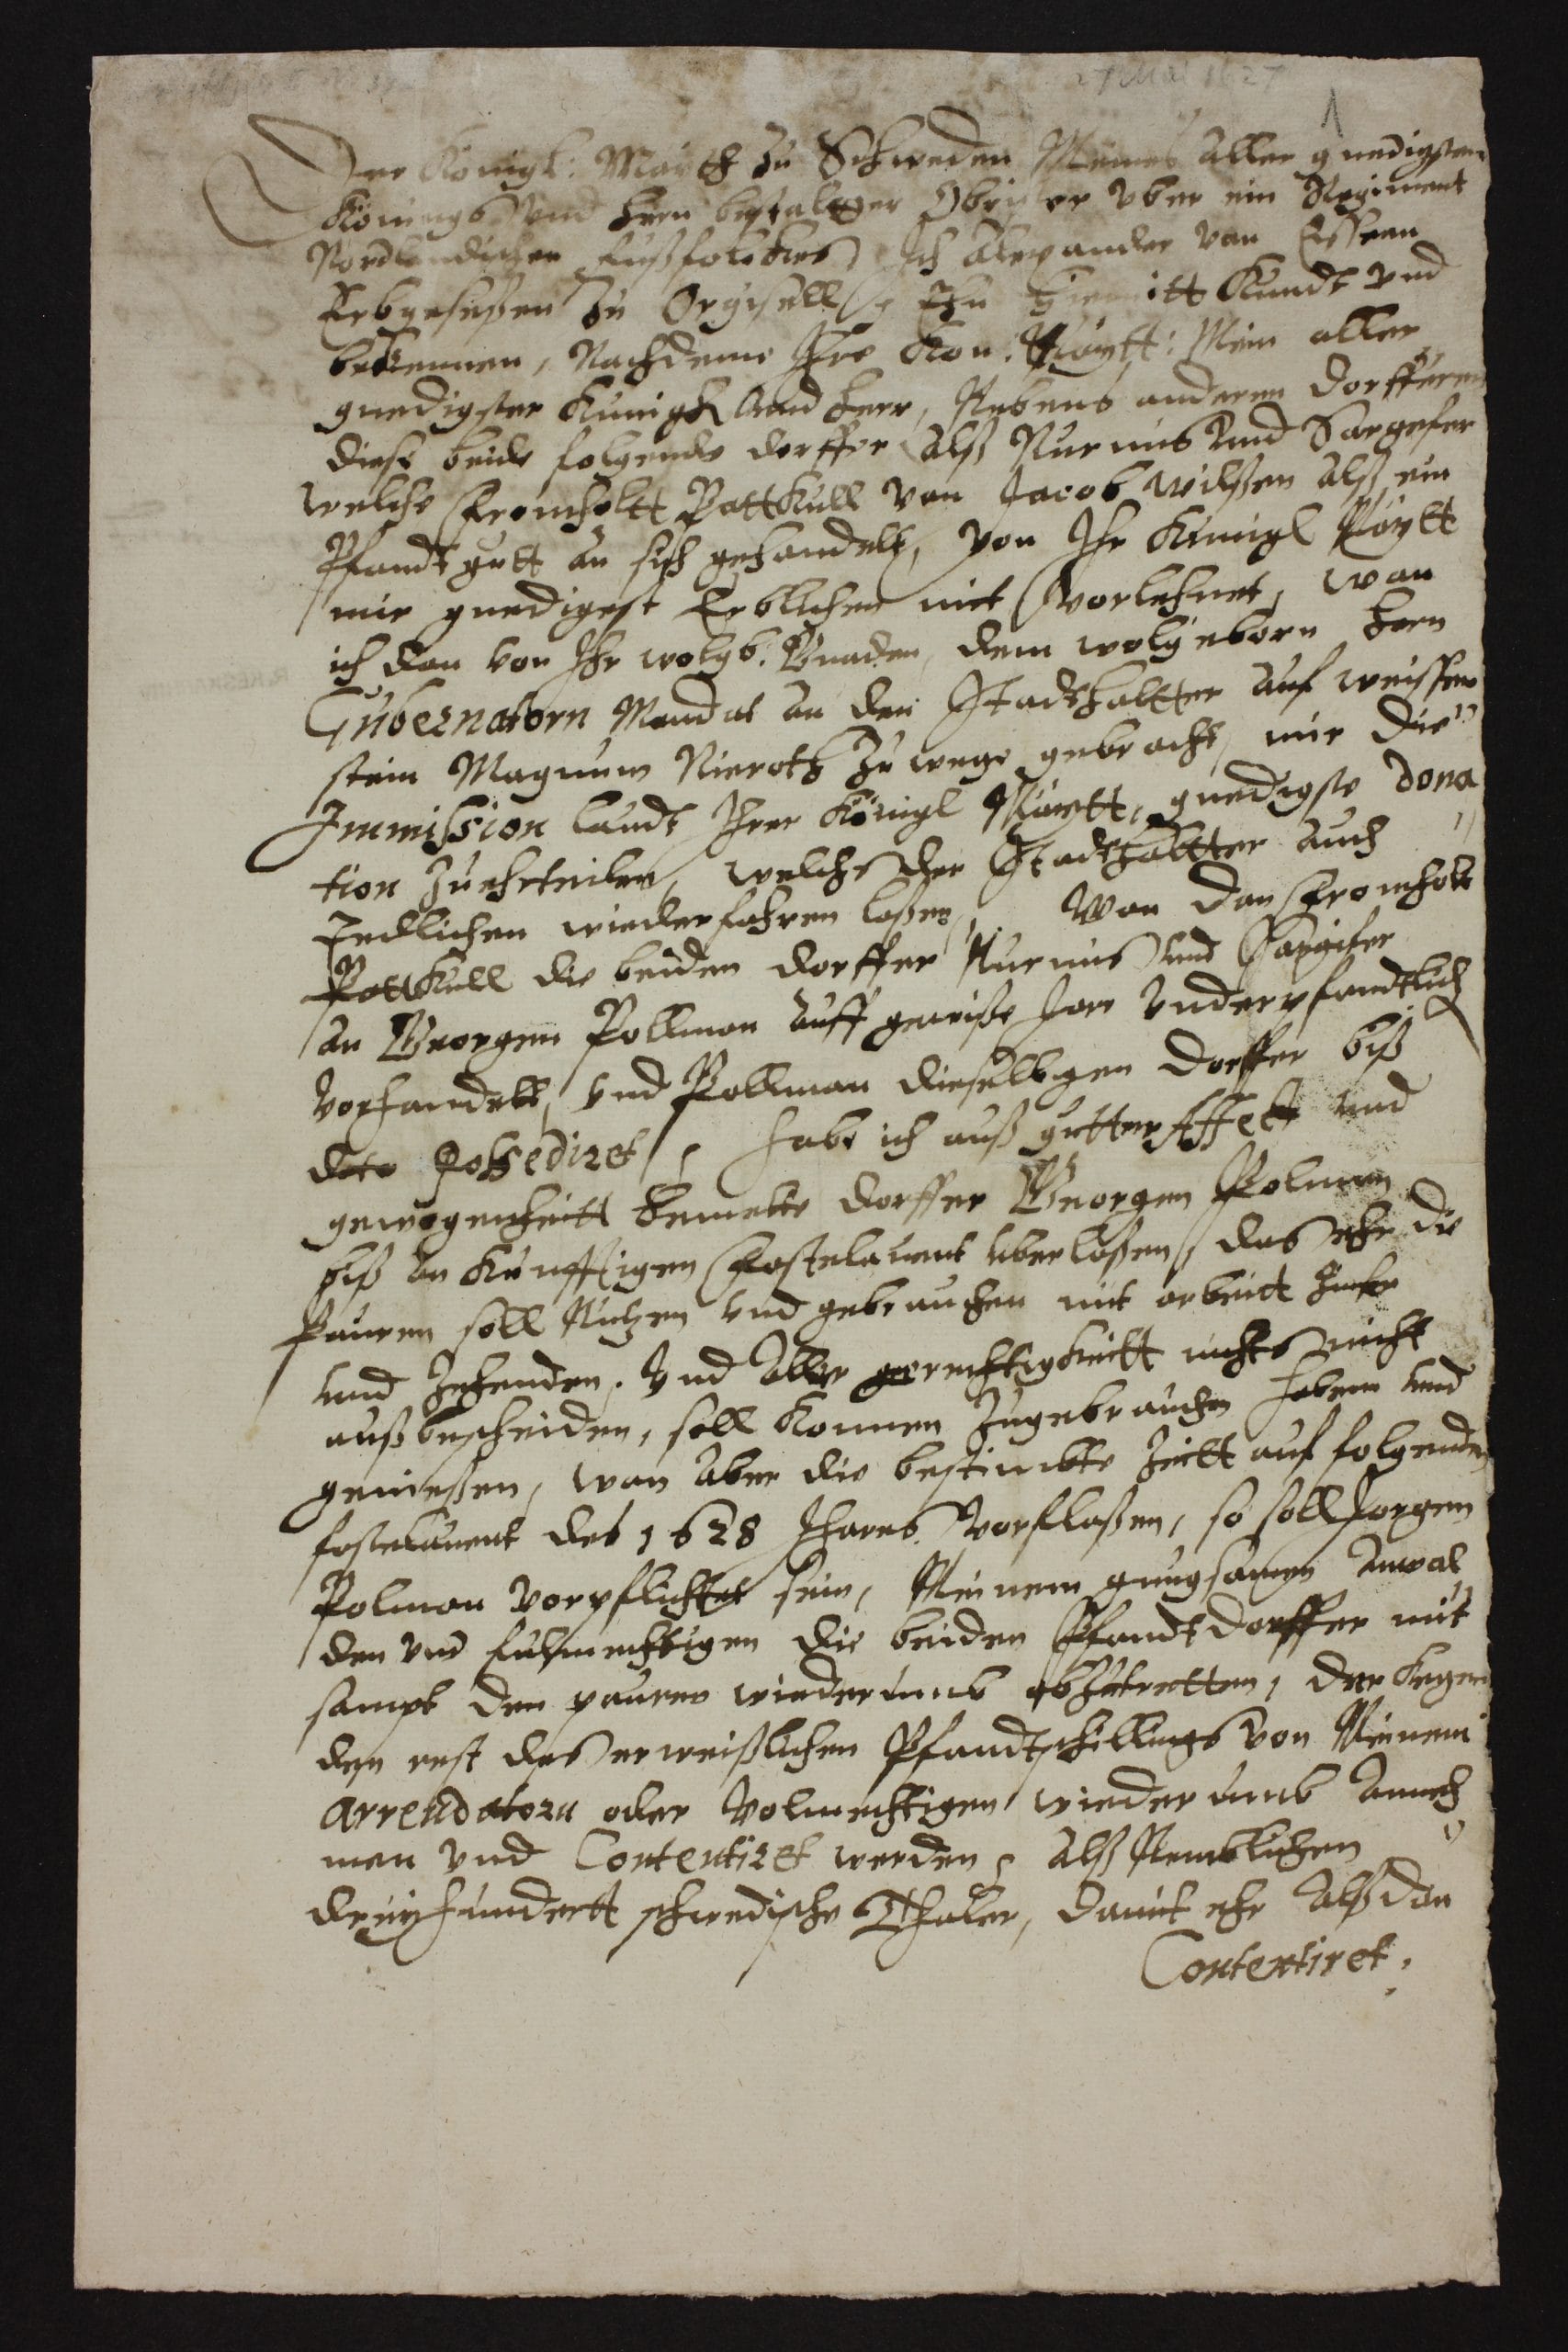 27 Mai 1627
1
Der Königk: Maytt zu Schweden Meines Aller gnedigsten
Königs vnd Hern bestalter Obrister vber ein Regiment
Nordlendischer fußfolckes Ich Alexander von Essenn
Erbgesessen zu Orgisell Thu hiemitt Kundt vnd
bekennen, Nachdeme Ihre Kön. Maytt: Mein aller
gnedigster Kunigk vnd Herr, Nebens anderen dorffteren
diese beide folgende dorffer alß Nurmis vnd Sargefer
welche Fromholtt Pattkull van Jacob Wilßen alß ein
Pfandt gutt an sich gehandelt, von Ihr Kunigl Maytt
mir gnedigest Erblichen mit vorlehnet, wan
ich dan von Ihr wolgb. Gnaden, dem wolgeborn Hern
Gubernatorn Mandat an den Stadthaltter auf weissen
stein Magnum Nieroth zu wege gebracht, mir die
Immission laudt Ihrer Königl Maytt, gnedigste dona
tion zu ehrteilen, welche der Stadthaltter auch
Endlichen wiederfahren laßen, Wan dan Fromholt
Pattkull die beiden dorffer Nurmis vnd Sargifer
an Georgen Pollman auff gewiße Jare vnderpfandtlich
vorhandelt, vnd Pollman dieselbigen dorffer biß
dato possediret, habe ich auß gutter Affect vnd
gewogenheitt bemelte dorffer Georgen Polman
biß an Kunfftigen Fastelauent vberlaßen, das ehr die
Pauren soll Nutzen vnd gebrauchen mit arbeitt Zinse
vnd zehenden. Vnd aller gerechtigkeitt nichts nicht
außbescheiden, soll konnen zugebrauchen haben vnd
genießen, wan aber die bestimbte Zeitt auf folgenden
fastelauent des 1628 Jhares vorflaßen, so soll Jorgen
Polman vorpflichtet sein, Meinem gnugsamen Anwal
den vnd fulmechtigen die beiden Pfandt dorffer mit
sampt den pauren wiederumb abzutretten, der kegen
den rest des erweißlichen Pfandtschillings von Meinem
Arrendatorn oder Volmechtigen wiederumb Anneh
men vnd Contentiret werden, alß Nemblichen
dreyhundertt schwedische Thaler, damit ehr alßdan
Contentiret.